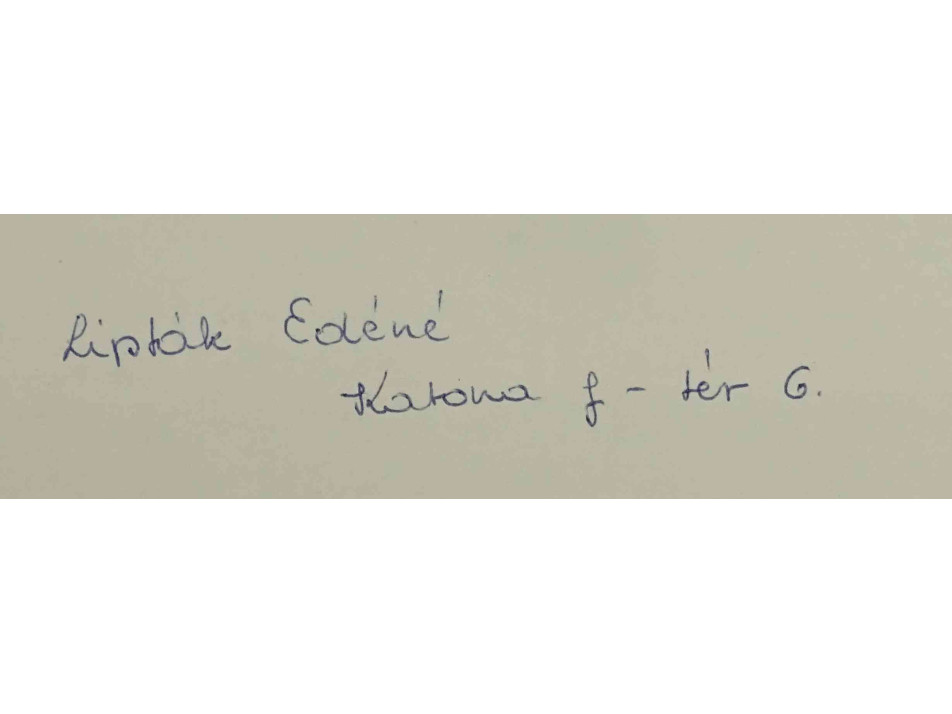 Lipták Edéné
Katona J - tér 6.